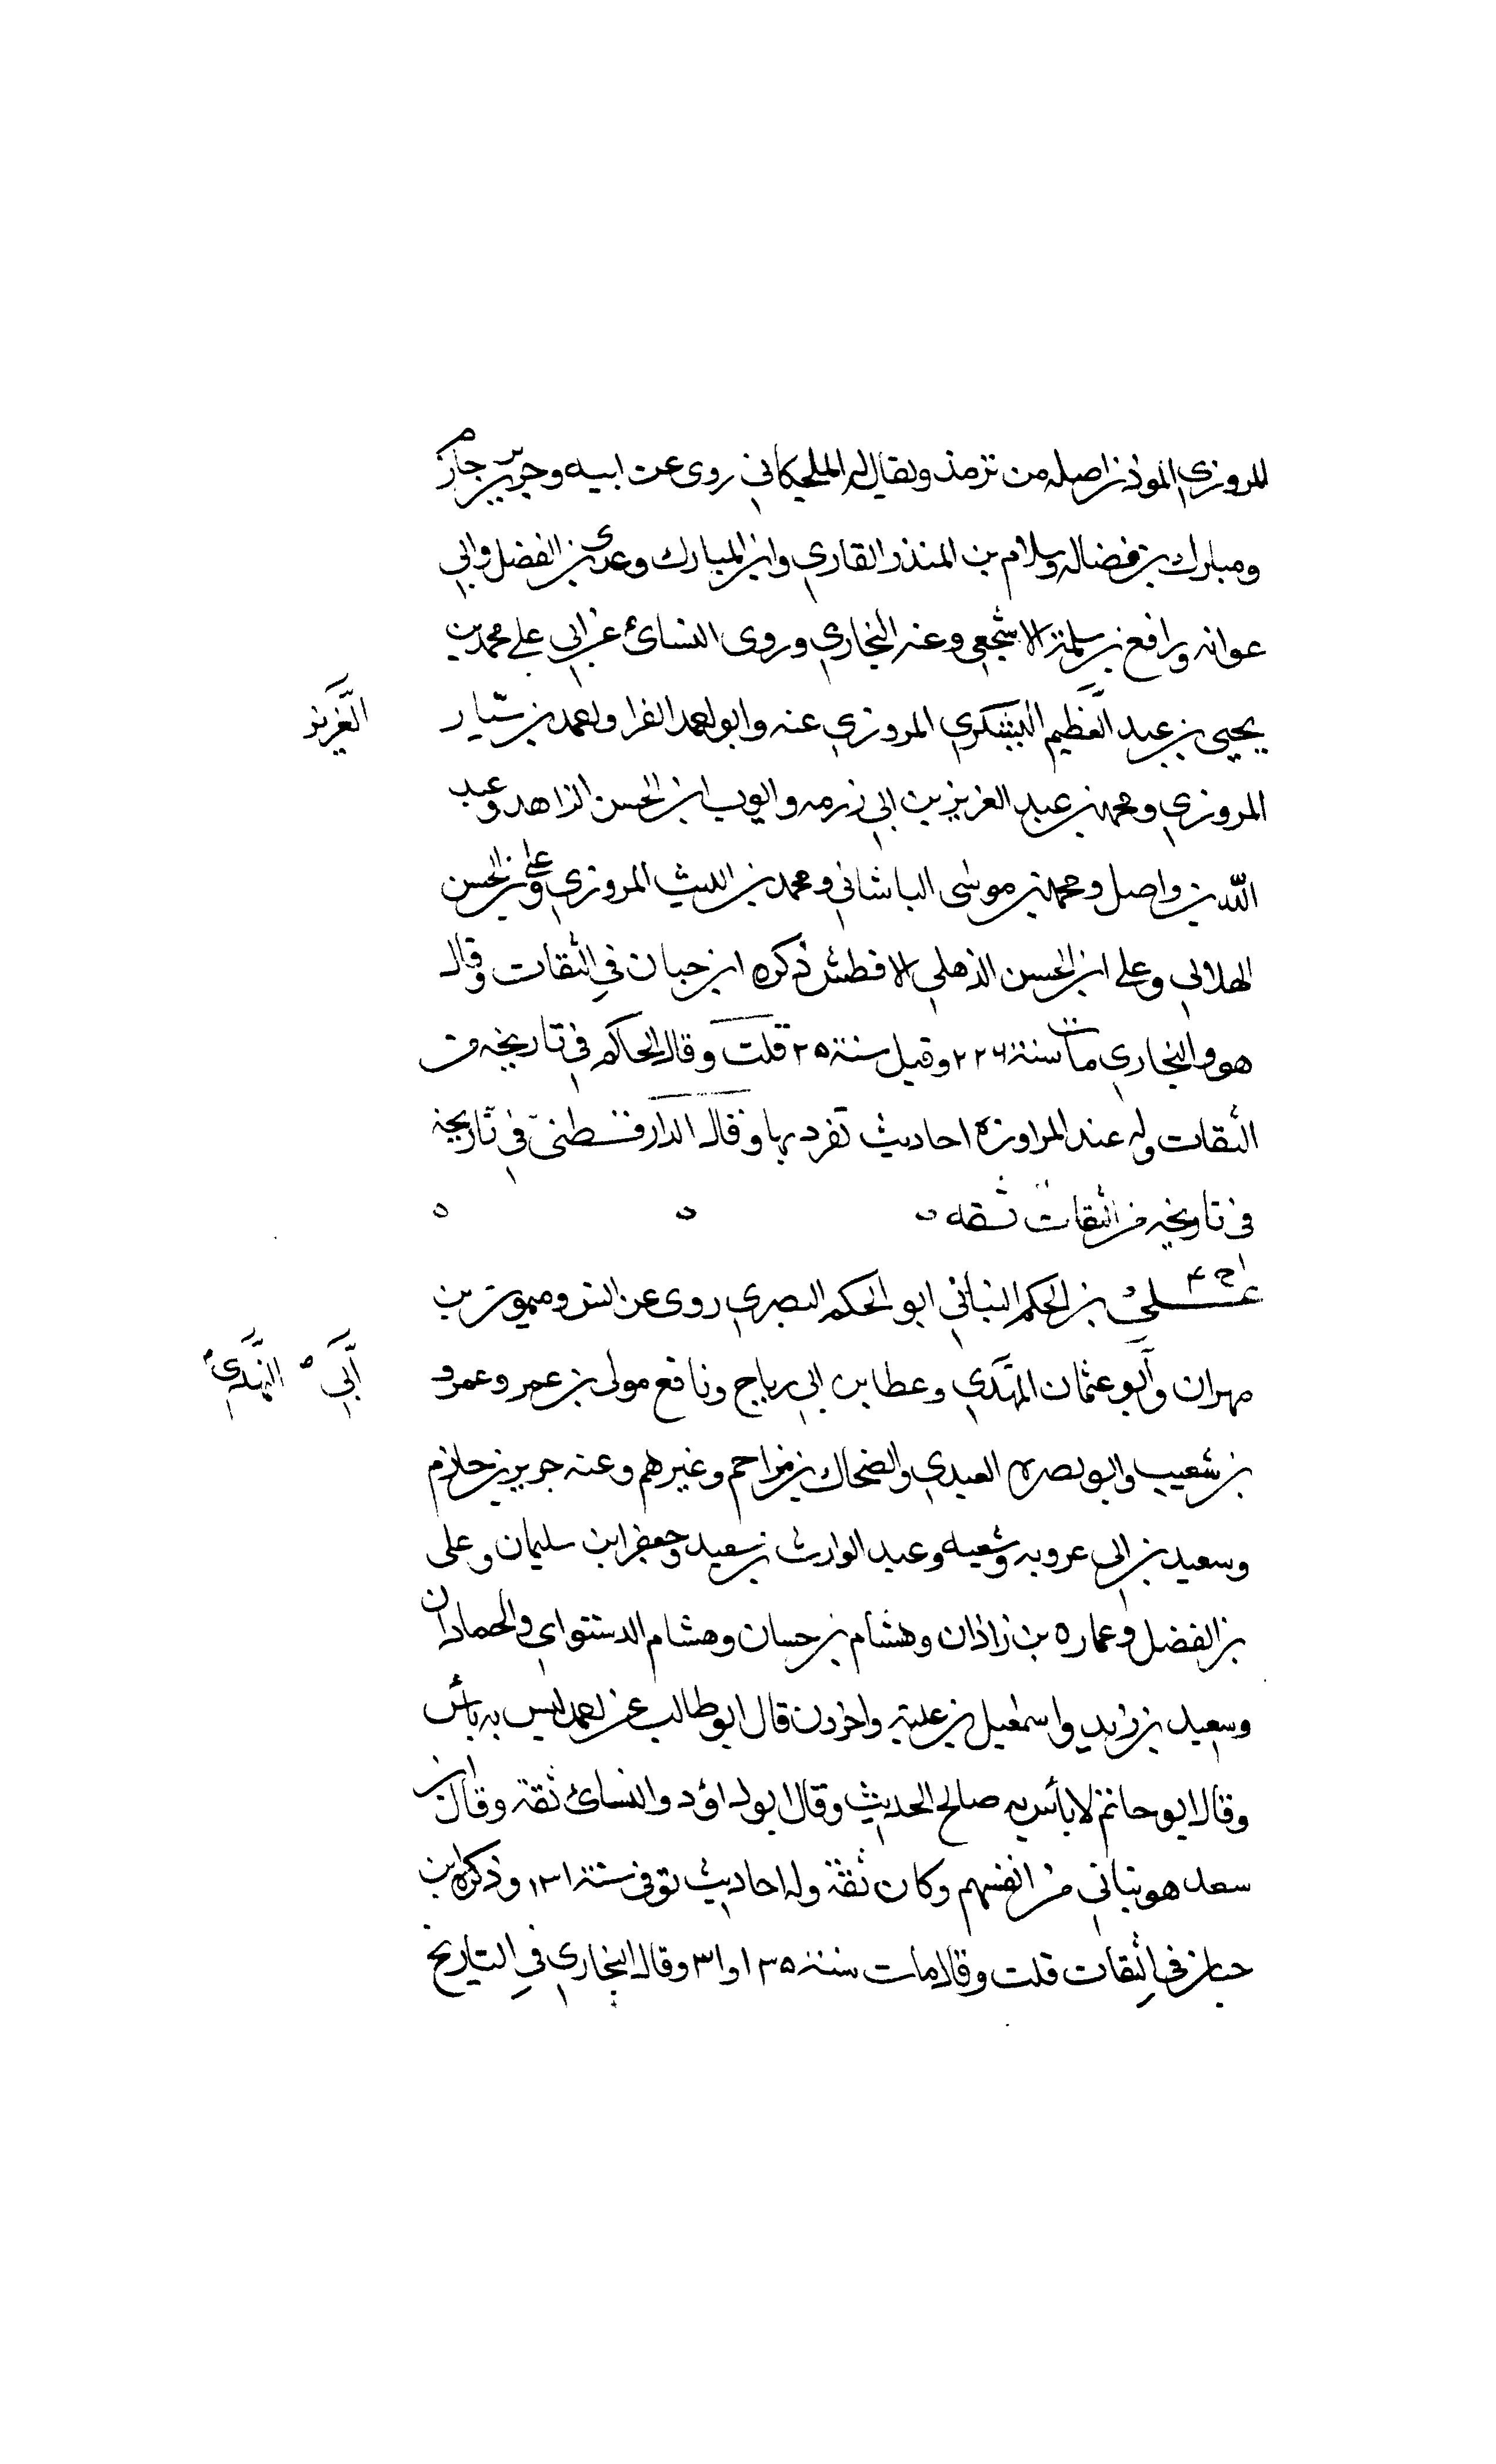 المروزي المؤذن اصله من ترمذ ويقال له الملحكاني روى عن ابيه وجرير بن حازم
ومبارك بن فضاله وسلام بن المنذر القاري وابن المبارك وعدى بن الفضل وابي
عوانه ورافع بن سلمة الاشجعي وعنه البخاري وروى النسائ عن ابي علي محمد بن
يحيى بن عبد العظيم اليشكري المروزي عنه وابو احمد الفرا واحمد بن سيار
العزيز
المروزي ومحمد بن عبد العزيز بن ابي رزمه وايوب ابن الحسن الزاهد وعبد
الله بن واصل ومحمد بن موسى الباشاني ومحمد بن الليث المروزي وعلي بن الحسن
الهلالي وعلي ابن الحسن الذهلي الافطس ذكره ابن حبان في الثقات وقال
هو والبخاري مات سنة ٢٢٦ وقيل سنة ٢٥ قلت وقال الحاكم في تاريخه من
الثقات وله عند المراوزه احاديث تفرد بها وقال الدارقطني في تاريخه
في تاريخه من الثقات ثقه
علي بن الحكم البناني ابو الحكم البصري روى عن انس وميمون بن
مهران وأبو عثمان المهدي وعطا بن ابي رباح ونافع مولى بن عمر وعمرو
أبي النهدي
بن شعيب وابو نصره العبدي والضحاك بن مزاحم وغيرهم وعنه جرير بن حازم
وسعيد بن ابي عروبه وشعبه وعبد الوارث بن سعيد وجعفر ابن سليمان وعلى
بن الفضل وعماره بن زاذان وهشام بن حسان وهشام الدستواي والحمادان
وسعيد بن زيد واسمعيل بن علية واخرون قال ابو طالب عن احمد ليس به بأس
وقال ابو حاتم لا بأس به صالح الحديث وقال ابو داؤد والنسائ ثقة وقال ابن
سعد هو بناني من انفسهم وكان ثقة وله احاديث توفى سنة ١٣١ وذكره ابن
حبان في الثقات قلت وقال مات سنة ١٣٥ او ٣١ وقال البخاري في التاريخ